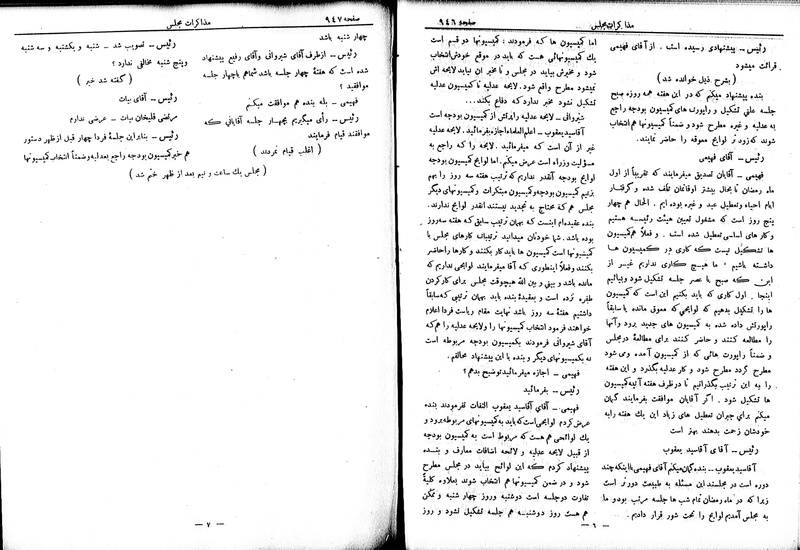 مذاکرات مجلس
صفحه ۹۴۶
رئیس ــ پیشنهادی رسیده است . از آقای فهیمی
قرائت میشود
( بشرح ذیل خوانده شد )
بنده پیشنهاد میکنم که در این هفته همه روزه صبح
جلسه علنی تشکیل و راپورت های کمیسیون بودجه راجع
به عدلیه و غیره مطرح شود و ضمناً کمیسیونها هم انتخاب
شوند که زودتر لوایح معوقه را حاضر نمایند.
رئیس ــ آقای فهیمی
فهیمی ــ آقایان تصدیق میفرمایند که تقریباً از اول
ماه رمضان تا بحال بیشتر اوقاتمان تلف شده و گرفتار
ایام احیاء و تعطیل عید و غیره بوده ایم . الحال هم چهار
پنج روز است که مشغول تعیین هیئت رئیسه هستیم
و کار های اساسی تعطیل شده است . و فعلاً هم کمیسیون
ها تشکیل نیست که کاری در کمیسیون ها
داشته باشیم . ما هیچ کاری نداریم غیر از
این که صبح یا عصر جلسه تشکیل شود و بیائیم
اینجا . اول کاری که باید بکنیم این است که کمیسیون
ها را تشکیل بدهیم که لوایحی که معوق مانده یا سابقاً
راپورتش داده شده به کمیسیون های جدید برود و آنها
را مطالعه کنند و حاضر کنند برای مطالعهٔ در مجلس
و ضمناً راپورت هائی که از کمیسیون آمده و می شود
مطرح گردد مطرح شود و کار عدلیه بگذرد و این هفته
را به این ترتیب بگذرانیم تا در ظرف هفته آتیه کمیسیون
ها تشکیل شود . اگر آقایان موافقت بفرمایند گمان
میکنم برای جبران تعطیل های زیاد این یک هفته را به
خودشان زحمت بدهند بهتر است
رئیس ــ آقای آقاسید یعقوب
آقاسید یعقوب ــ بنده گمان میکنم آقای فهیمی با اینکه چند
دوره است در مجلسند این مسئله به طبیعت دورتر است
زیرا که در ماه رمضان تمام شب ها جلسه مرتب بود و ما
به مجلس آمدیم لوایح را تحت شور قرار دادیم .
اما کمیسیون ها که فرمودند : کمیسیونها دو قسم است
یک کمیسیونهائی هست که باید در موقع خودش انتخاب
شود و مخبرش بیاید در مجلس و تا مخبر آن نیاید لایحه اش
نمیشود مطرح واقع شود. لایحه عدلیه تا کمیسیون عدلیه
تشکیل نشود مخبر ندارد که دفاع بکند...
شیروانی ــ لایحه عدلیه راپرتش از کمیسیون بودجه است
آقاسید یعقوب ــ اعلم العلماء اجازه بفرمائید. لایحه عدلیه
غیر از آن است که میفرمائید . لایحه را که راجع به
مسؤلیت وزراء است عرض میکنم . اما لوایح کمیسیون بودجه
لوایح بودجه آنقدر نداریم که ترتیب هفته سه روز را بهم
بزنیم کمیسیون بودجه و کمیسیون مبتکرات و کمیسیونهای دیگر
مجلس هم که محتاج به تجدید نیستند انقدر لوایح ندارند.
بنده عقیده ام اینست که بهمان ترتیب سابق که هفته سه روز
بوده باشد. شما خودتان میدانید ترتیبات کارهای مجلس با
کمیسیونها است کمیسیون ها باید کار بکنند و کارها را حاضر
بکنند و فعلاً اینطوری که آقا میفرمایند لوایحی نداریم که
مانده باشد و بینی و بین الله هیچوقت مجلس برای کار کردن
طفره نزده است و بعقیدهٔ بنده باید بهمان ترتیبی که سابقاً
داشتیم هفتهٔ سه روز باشد نهایت مقام ریاست فردا اعلام
خواهند فرمود انتخاب کمیسیونها را و لایحه عدلیه را هم که
آقای شیروانی فرمودند بکمیسیون بودجه مربوطه است
نه بکمیسیونهای دیگر و بنده با این پیشنهاد مخالفم .
فهیمی ــ اجازه میفرمائید توضیح بدهم ؟
رئیس ــ بفرمائید
فهیمی ــ آقای آقاسید یعقوب التفات نفرمودند بنده
عرض کردم لوایحی است که باید به کمیسیونهای مربوطه برود و
یک لوائحی هم هست که مربوط است به کمیسیون بودجه
از قبیل لایحه عدلیه و لایحه اضافات معارف و بنده
پیشنهاد کردم که این لوائح بیاید در مجلس مطرح
شود و در ضمن کمیسیونها هم انتخاب شوند بعلاوه کلیهٔ
تفاوت دو جلسه است دوشنبه و روز چهار شنبه و ممکن
هم هست روز دوشنبه هم جلسه تشکیل نشود و روز
— ۶ —
مذاکرات مجلس
صفحه ۹۴۷
چهار شنبه باشد
رئیس ــ از طرف آقای شیروانی و آقای رفیع پیشنهاد
شده است که هفتهٔ چهار جلسه باشد شما هم با چهار جلسه
موافقید ؟
فهیمی ــ بله بنده هم موافقت میکنم
رئیس ــ رأی میگیریم بچهار جلسه آقایانی که
موافقند قیام فرمایند
( اغلب قیام نمودند )
رئیس ــ تصویب شد ــ شنبه و یکشنبه و سه شنبه
و پنج شنبه مخالفی ندارد ؟
( گفته شد خیر )
رئیس ــ آقای بیات
مرتضی قلیخان بیات ــ عرضی ندارم
رئیس ــ بنابراین جلسهٔ فردا چهار قبل از ظهر دستور
هم خبر کمیسیون بودجه راجع بعدلیه و ضمناً انتخاب کمیسیونها
( مجلس یک ساعت و نیم بعد از ظهر ختم شد )
— ۷ —